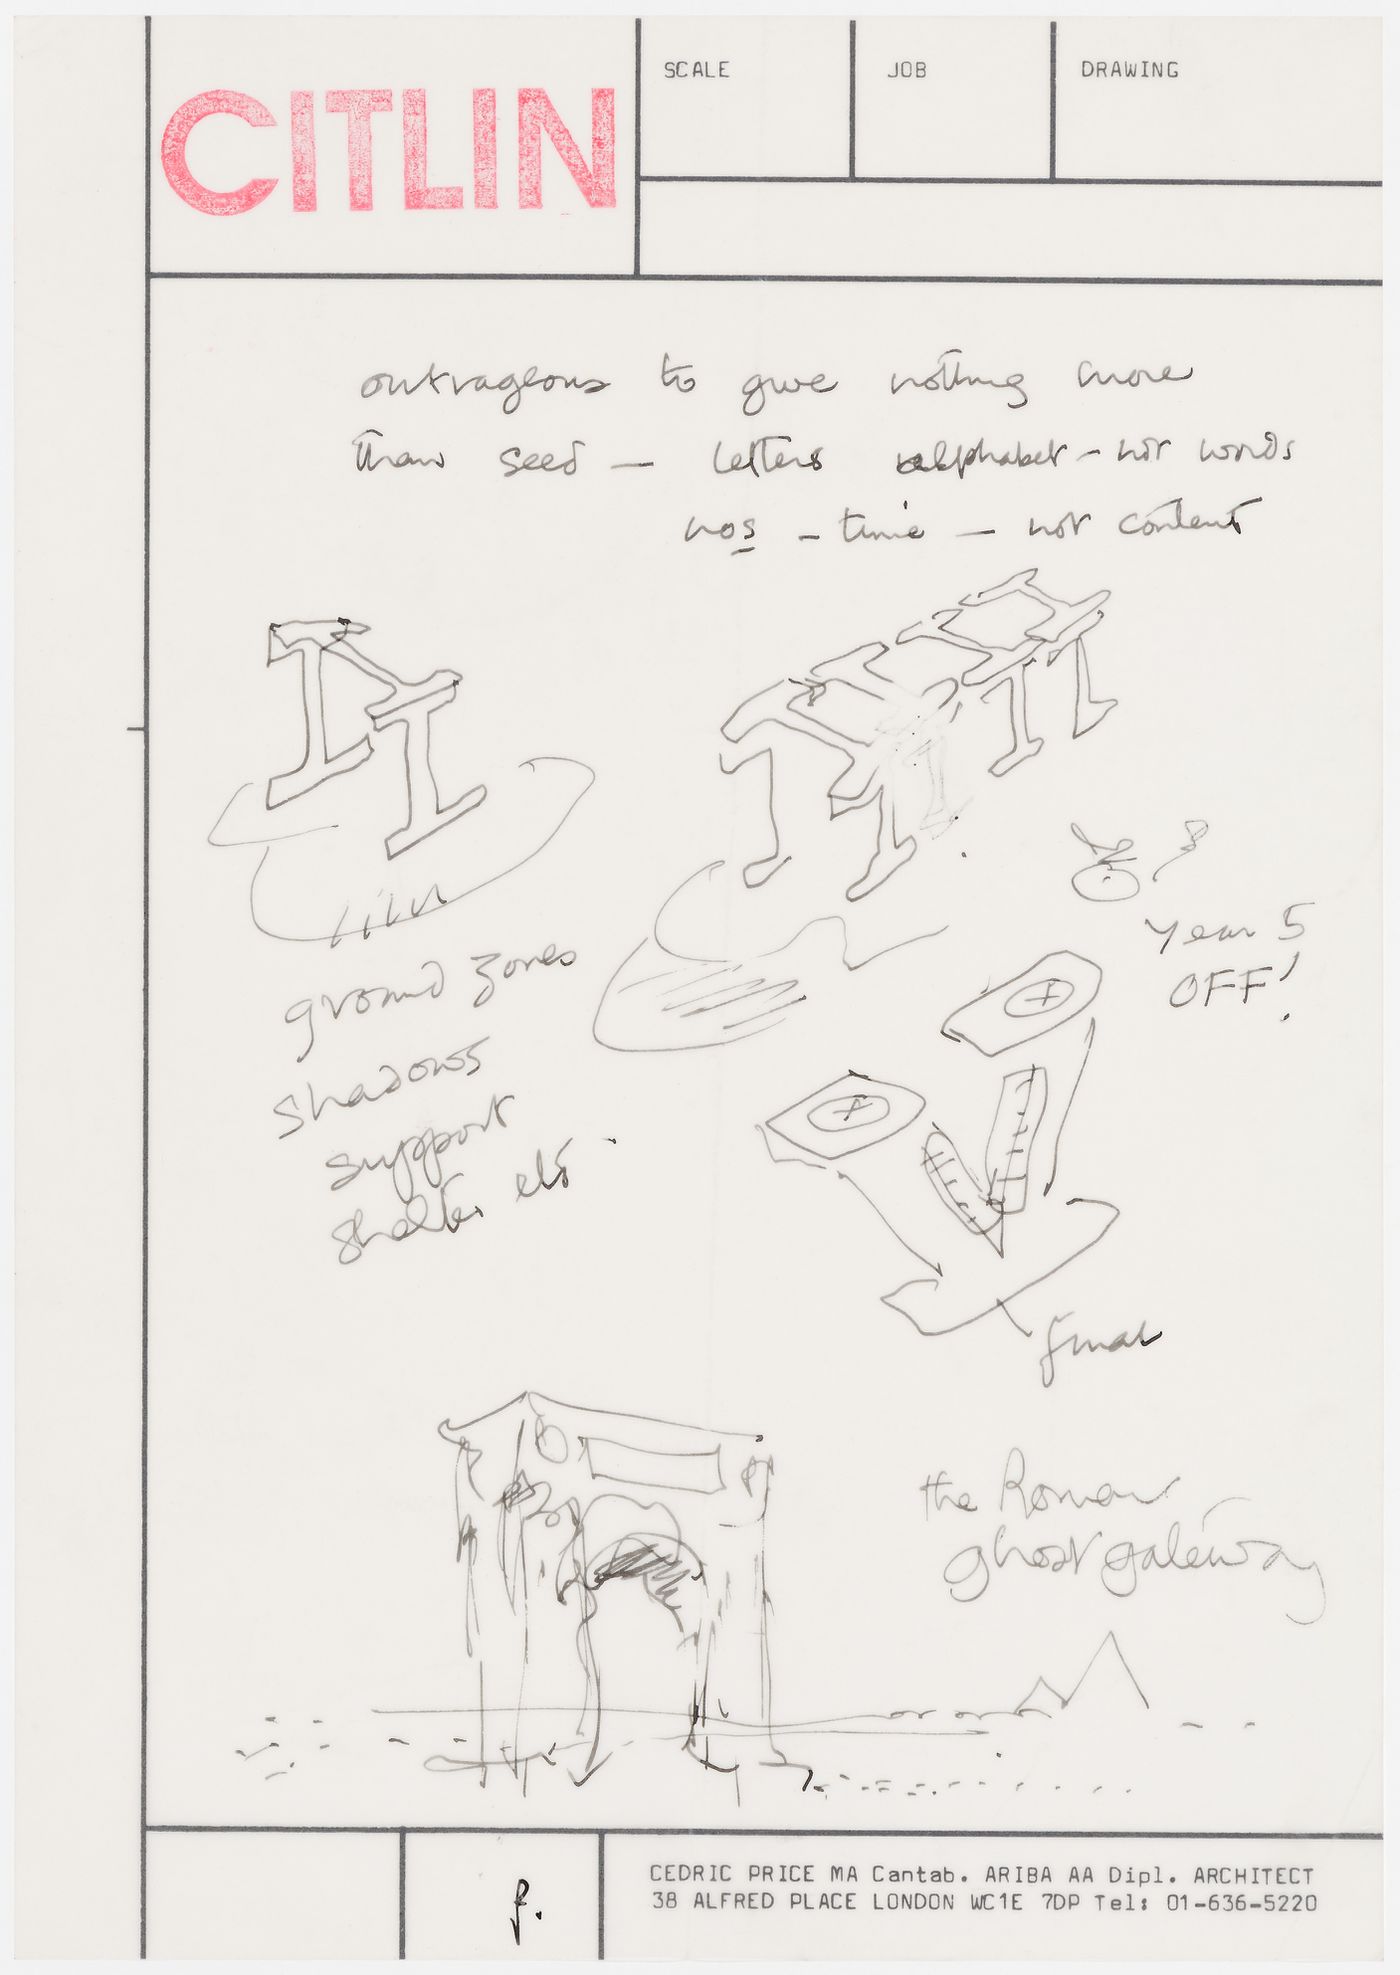 CITLIN
SCALE
JOB
DRAWING
outrageous to give nothing more
than seed — letters alphabet – not words
nos – time — not content
year 5
OFF!
ground zones
shadows
support
shelter etc
final
the Roman
ghost gateway
P.
CEDRIC PRICE MA Cantab. ARIBA AA Dipl. ARCHITECT
38 ALFRED PLACE LONDON WC1E 7DP Tel: 01-636-5220